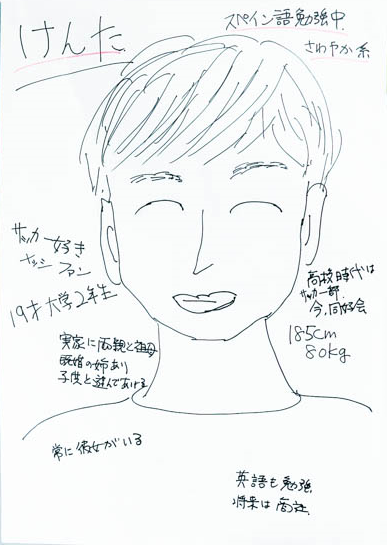 けんた
スペイン語勉強中
さわやか系
サッカー好き
メッシ ファン
19才大学2年生
高校時代は
サッカー部
今、同好会
185cm
80kg
実家に両親と祖母
既婚の姉あり
子供と遊んであげる
常に彼女がいる
英語も勉強
将来は商社